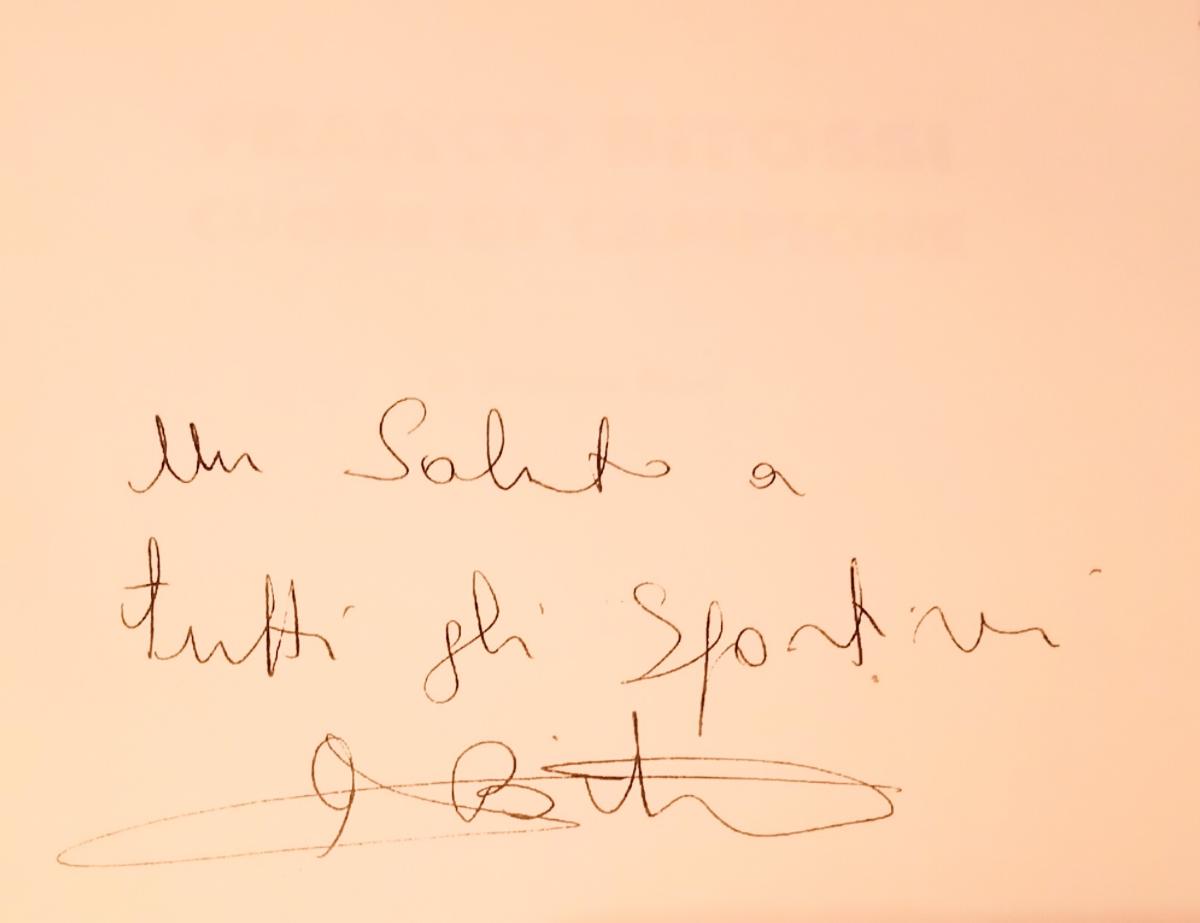 Un Saluto a
tutti gli Sportivi